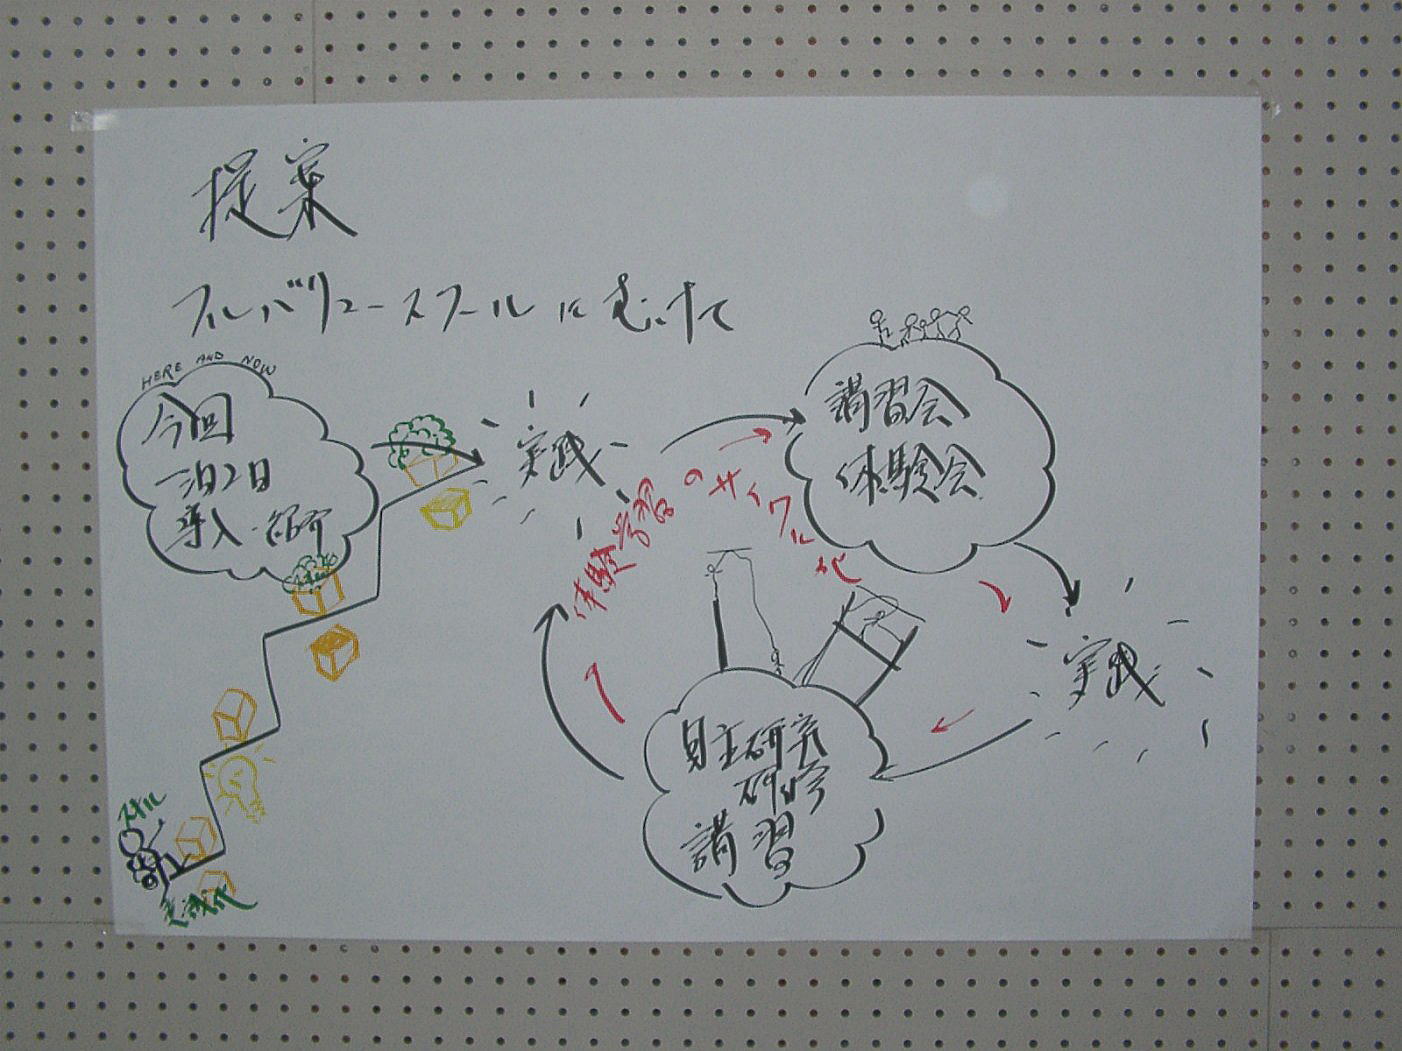 提案
フルバリュースクールにむけて
HERE AND NOW
今回
一泊2日
導入・紹介
実践
体験学習のサイクル化
講習会
体験会
実践
自主研究
研修
講習
スキル
意識化